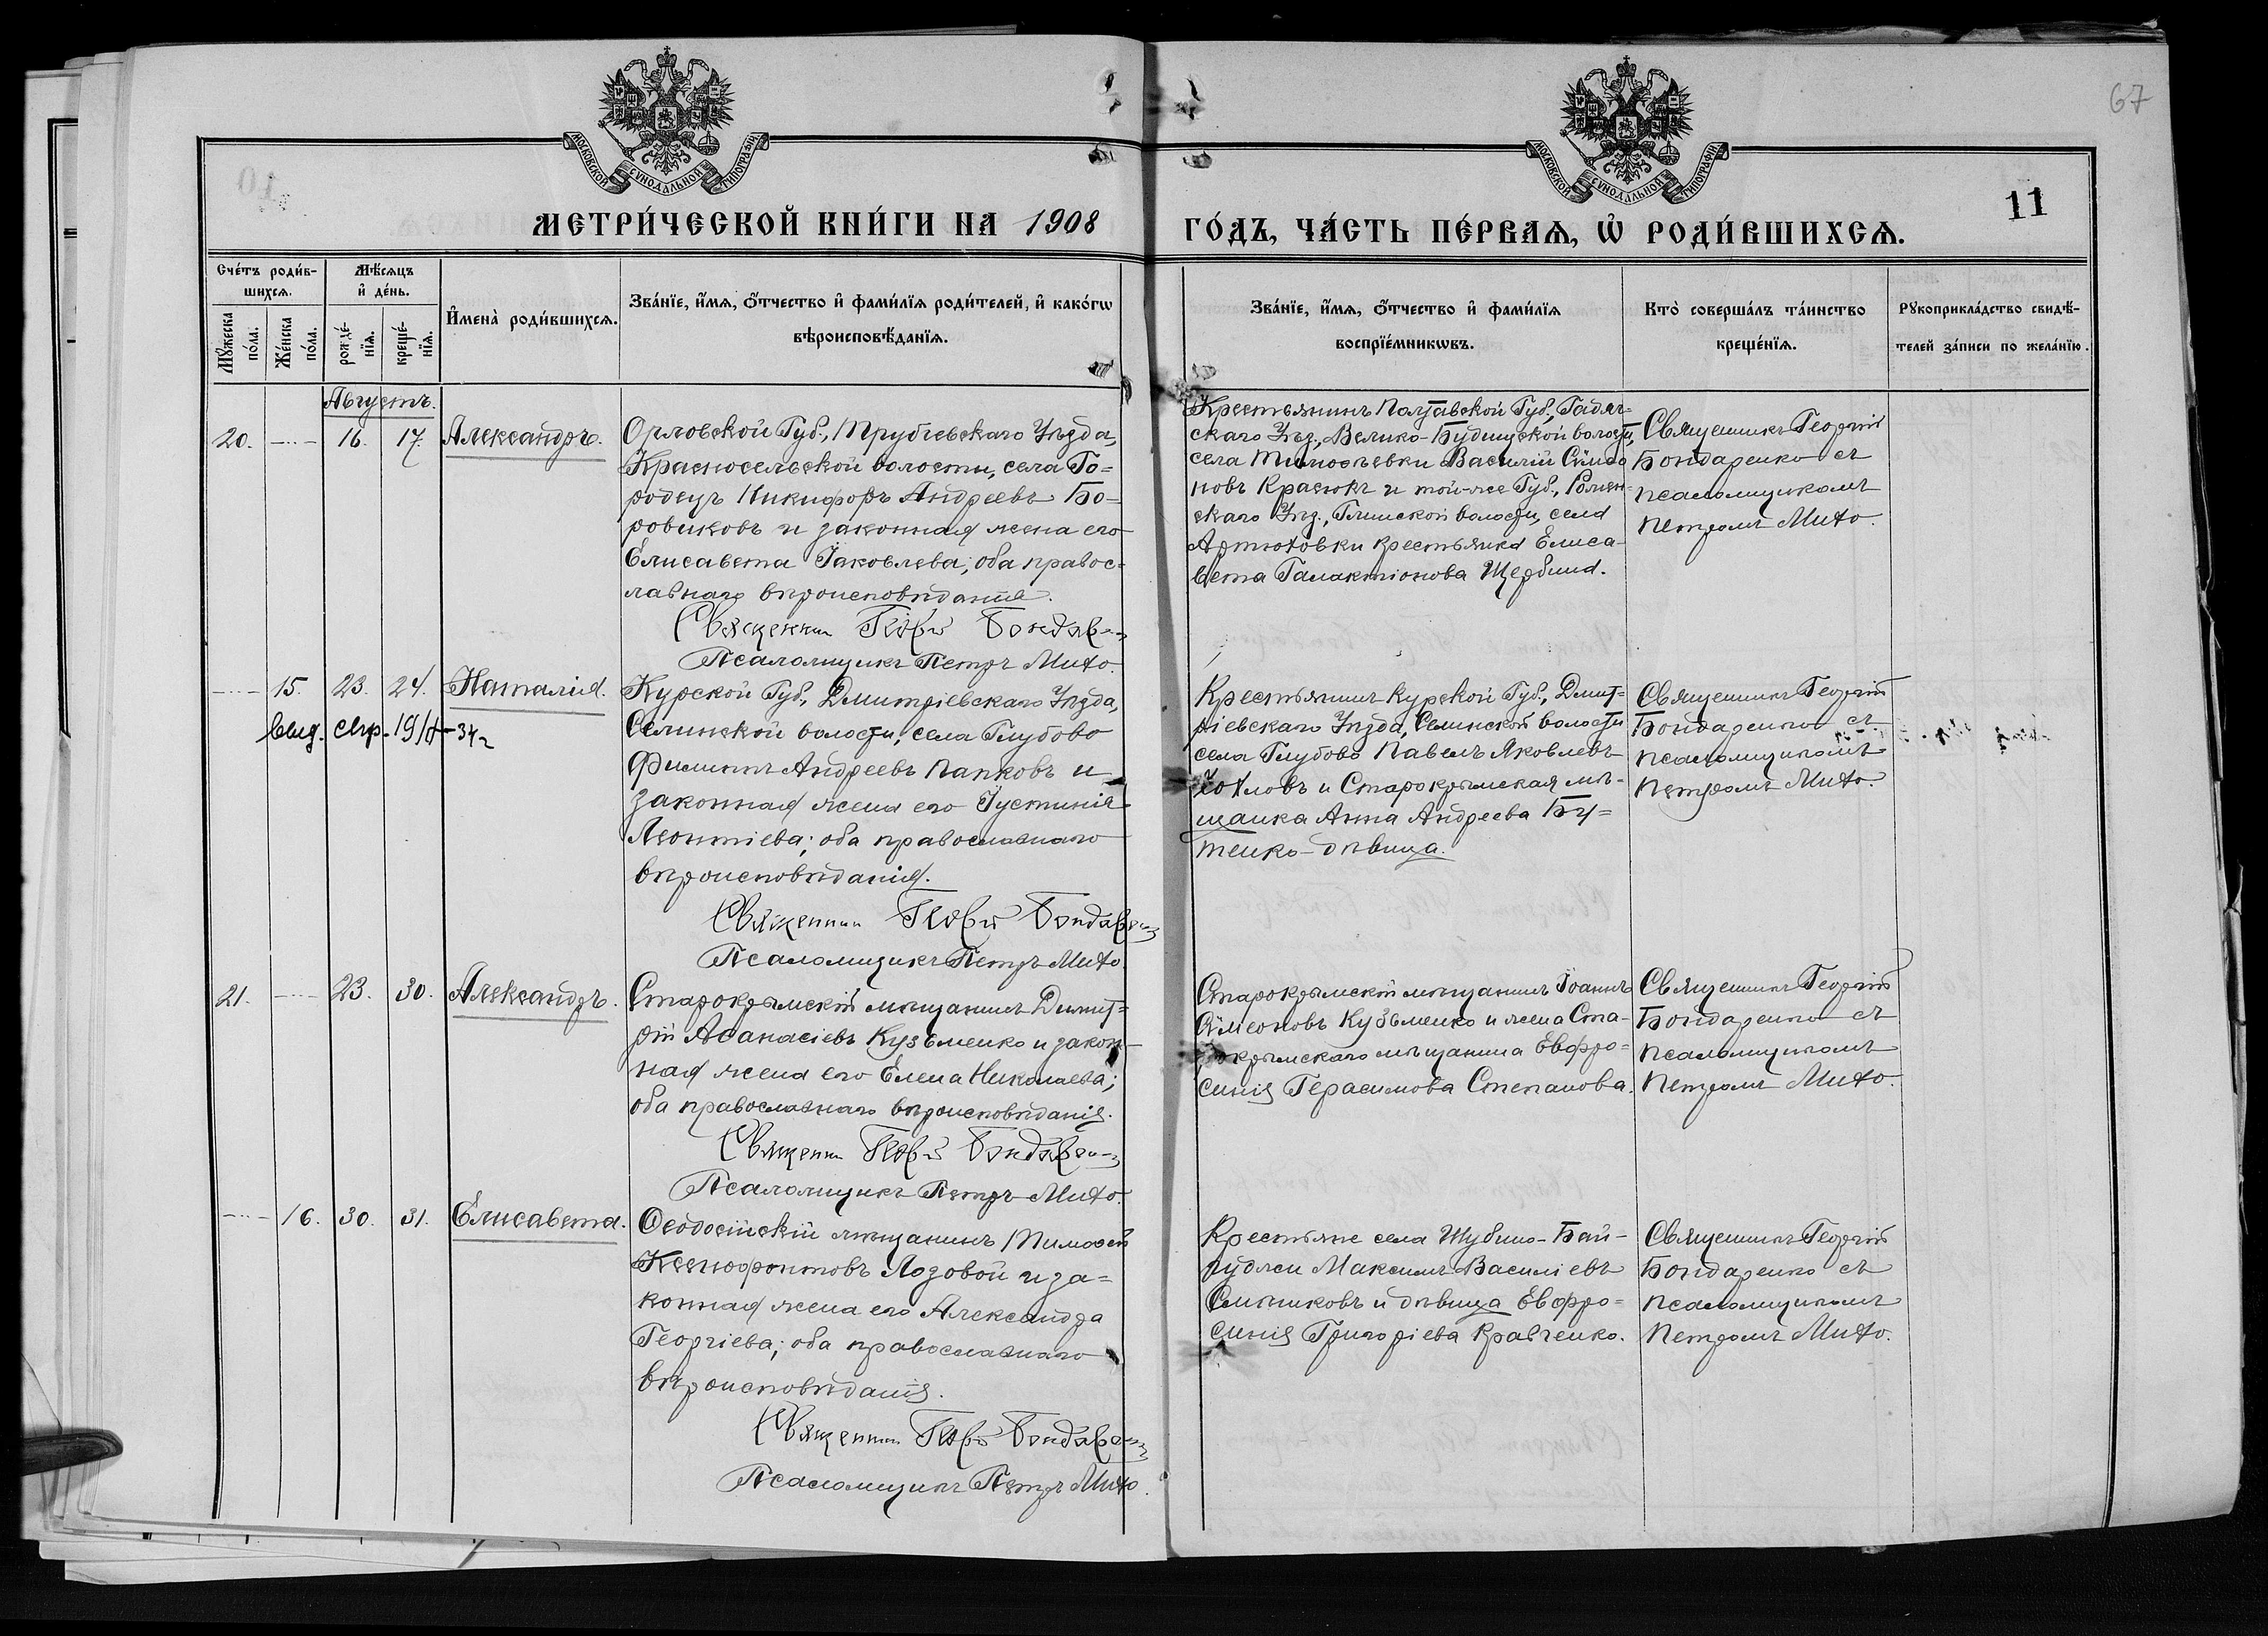 67
11
МОСКОВСКОЙ СѴНОДАЛЬНОЙ ТИПОГРАФІИ
МОСКОВСКОЙ СѴНОДАЛЬНОЙ ТИПОГРАФІИ
МЕТРИ́ЧЕСКОЙ КНИ́ГИ НА 1908
ГО́ДЪ, ЧА́СТЬ ПЕ́РВАѦ, Ѡ҆ РОДИ́ВШИХСѦ.
Сче́тъ роди́в-
шихсѧ.
Мѣ́сѧцъ
и҆ де́нь.
Мꙋ́жеска
по́ла.
Же́нска
по́ла.
рожде́-
нїѧ.
креще́-
нїѧ.
И҆мена̀ роди́вшихсѧ.
Зва́нїе, и҆́мѧ, ѻ҆́тчество и҆ фами́лїѧ роди́телей, и҆ како́гѡ
вѣроисповѣ́данїѧ.
Зва́нїе, и҆́мѧ, ѻ҆́тчество и҆ фами́лїѧ
воспрїе́мникѡвъ.
Кто̀ соверша́лъ та́инство
креще́нїѧ.
Рꙋкоприкла́дство свидѣ́-
телей за́писи по жела́нїю.
Августъ.
20.
16.
17.
Александръ.
Орловской Губ., Трубчевскаго Уѣзда,
Красносельской волости, села Го=
родецъ Никифоръ Андреевъ Бо-
ровиковъ и законная жена его
Елисавета Іаковлева; оба правос-
лавнаго вѣроисповѣданія.
Священник Георгій Бондаренко
Псаломщикъ Петръ Михо.
Крестьянинъ Полтавской Губ., Гадяч-
скаго Уѣз., Велико-Будищской волости,
села Тимоѳѣевки Василій Сѵмео
новъ Красюкъ и той-же Губ., Ромен-
скаго Уѣз., Глинской волости, села
Артюховки крестьянка Елиса-
вета Галактіонова Щербина.
Священникъ Георгій
Бондаренко съ
псаломщикомъ
Петромъ Михо.
15.
23.
24.
Наталія.
Выд. спр.
34г
Курской Губ., Дмитріевскаго Уѣзда,
Селинской волости, села Глубово
Филиппъ Андреевъ Папковъ и
законная жена его Іустинія
Леонтіева; оба православнаго
вѣроисповѣданія.
Священник Георгій Бондаренко
Псаломщикъ Петръ Михо.
Крестьянинъ Курской Губ., Дмит=
ріевскаго Уѣзда, Селинской волости
села Глубово Павелъ Яковлевъ
Хохловъ и Старокрымская мѣ-
щанка Анна Андреева Бу=
тенко-дѣвица.
Священникъ Георгій
Бондаренко съ
псаломщикомъ
Петромъ Михо.
21.
23.
30.
Александръ.
Старокрымскій мѣщанинъ Димит=
рій Аѳанасіевъ Кузьменко и закон-
ная жена его Елена Николаева;
оба православнаго вѣроисповѣданія.
Священник Георгій Бондаренко
Псаломщикъ Петръ Михо.
Старокрымскій мѣщанинъ Іоаннъ
Сѵмеоновъ Кузьменко и жена Ста-
рокрымскаго мѣщанина Евфро=
синія Герасимова Степанова.
Священникъ Георгій
Бондаренко съ
псаломщикомъ
Петромъ Михо.
16.
30.
31.
Елисавета.
Ѳеодосійскій мѣщанинъ Тимоѳей
Ксенофонтовъ Лозовой и за=
конная жена его Александра
Георгіева; оба православнаго
вѣроисповѣданія.
Священник Георгій Бондаренко
Псаломщикъ Петръ Михо.
Крестьяне села Шубино-Бай-
гуджи Максимъ Василіевъ
Слѣпиковъ и дѣвица Евфро=
синія Григоріева Кравченко.
Священникъ Георгій
Бондаренко съ
псаломщикомъ
Петромъ Михо.